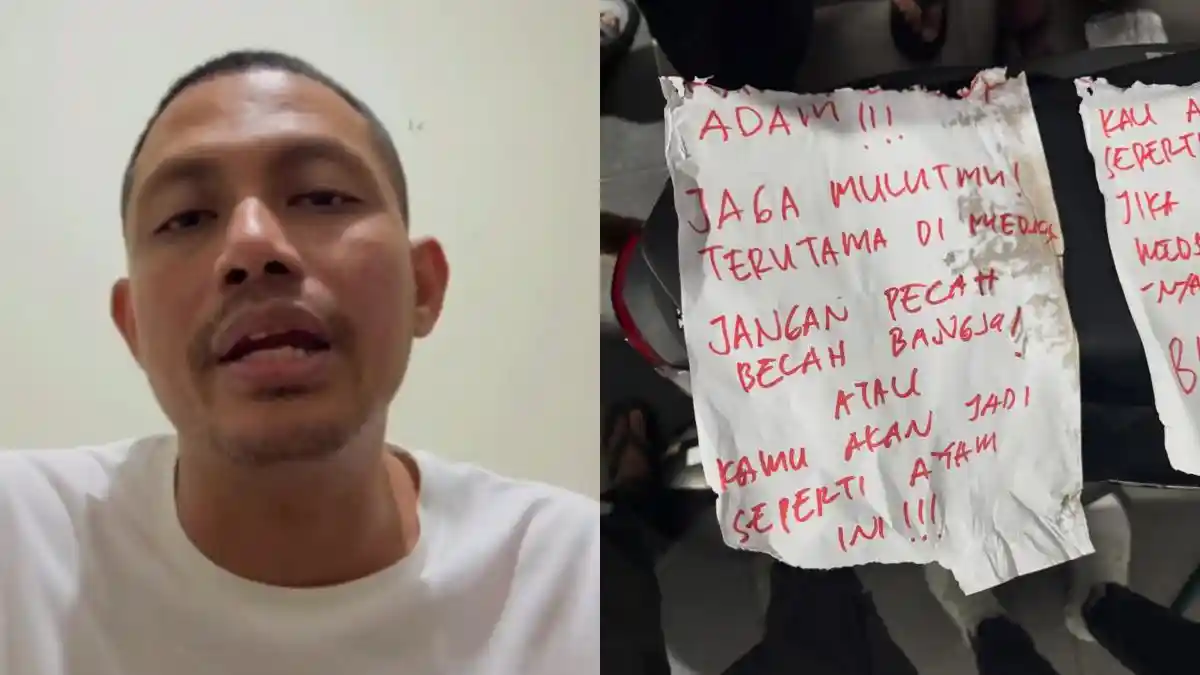 ADAM !!!
JAGA MULUTMU!
TERUTAMA DI
JANGAN PECAH
BECAH BANGSA!
ATAU
KAMU AKAN JADI
SEPERTI AYAM
INI !!!
KAU A
SEPERTI
JIKA
-NYA
B